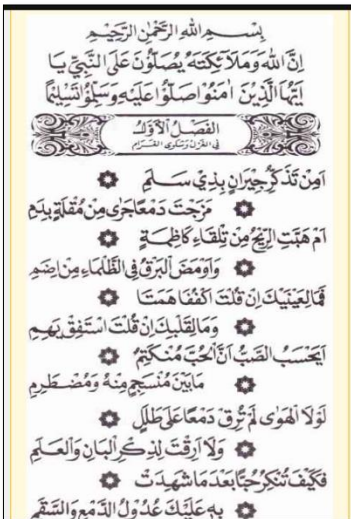 بِسْمِ اللهِ الرَّحْمٰنِ الرَّحِيْمِ
اِنَّ اللهَ وَمَلَآئِكَتَهُ يُصَلُّوْنَ عَلَى النَّبِيِّ يَا
اَيُّهَا الَّذِيْنَ اٰمَنُوْا صَلُّوْا عَلَيْهِ وَسَلِّمُوْا تَسْلِيْمًا
اَلْفَصْلُ الْاَوَّلُ
فِي الْغَزْلِ وَشَكْوَى الْغَرَامِ
اَمِنْ تَذَكُّرِ جِيْرَانٍ بِذِيْ سَلَمٍ
مَزَجْتَ دَمْعًا جَرٰى مِنْ مُقْلَةٍ بِدَمِ
اَمْ هَبَّتِ الرِّيْحُ مِنْ تِلْقَاءِ كَاظِمَةٍ
وَاَوْمَضَ الْبَرْقُ فِي الظَّلْمَاءِ مِنْ اِضَمِ
فَمَا لِعَيْنَيْكَ اِنْ قُلْتَ اكْفُفَا هَمَتَا
وَمَا لِقَلْبِكَ اِنْ قُلْتَ اسْتَفِقْ يَهِمِ
اَيَحْسَبُ الصَّبُّ اَنَّ الْحُبَّ مُنْكَتِمٌ
مَا بَيْنَ مُنْسَجِمٍ مِنْهُ وَمُضْطَرِمِ
لَوْلَا الْهَوٰى لَمْ تُرِقْ دَمْعًا عَلٰى طَلَلٍ
وَلَا اَرِقْتَ لِذِكْرِ الْبَانِ وَالْعَلَمِ
فَكَيْفَ تُنْكِرُ حُبًّا بَعْدَ مَا شَهِدَتْ
بِهِ عَلَيْكَ عُدُوْلُ الدَّمْعِ وَالسَّقَمِ